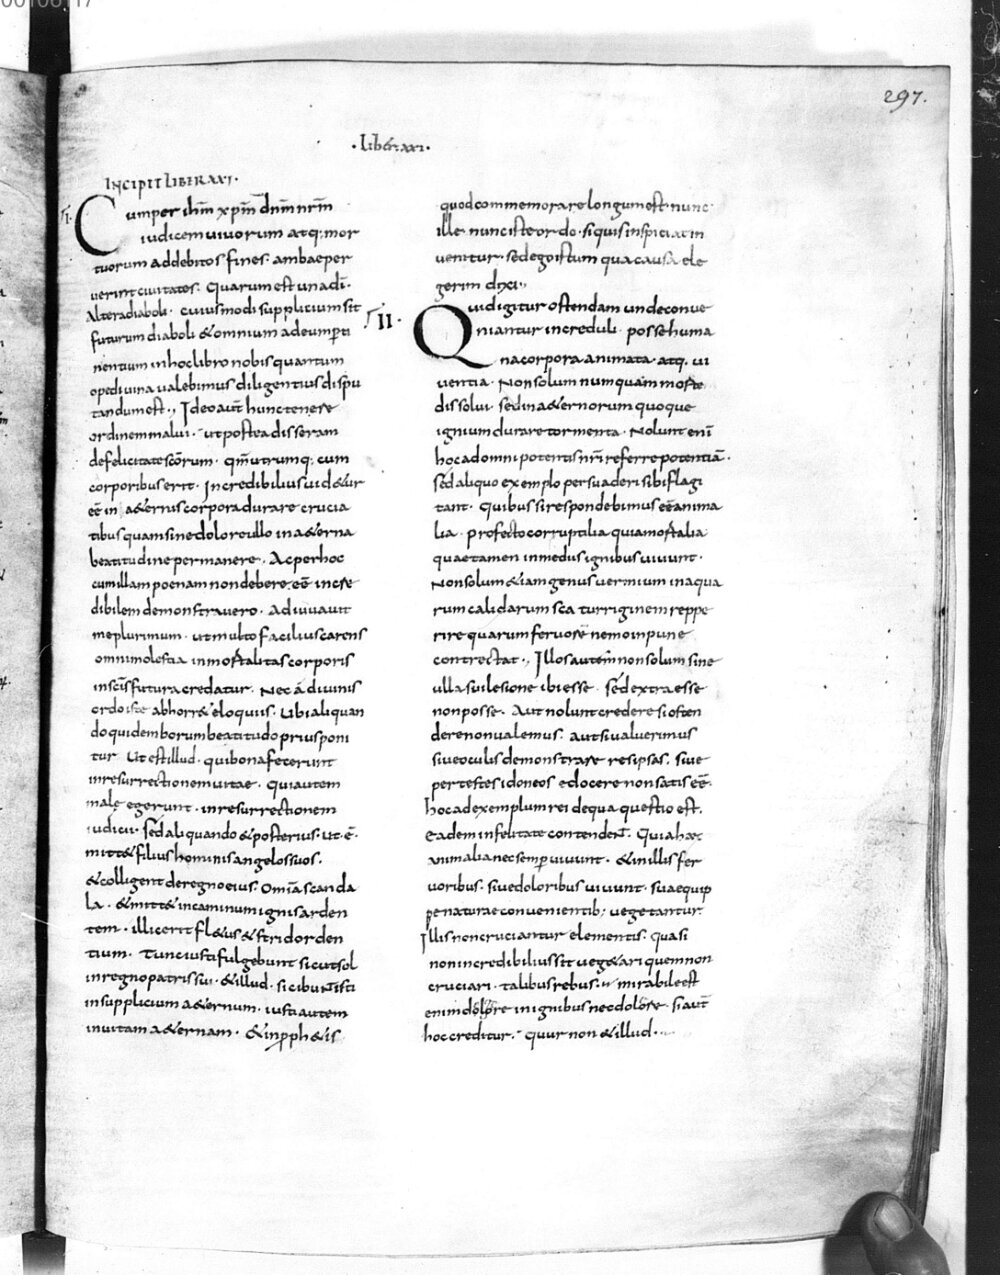 00106117
297.
· Liber xxi ·
INCIPIT LIBER XXI ·
I.
Cum per ihm xpm dnm nrm
iudicem uiuorum atq; mor
tuorum ad debitos fines · ambae per
uerint ciuitates · Quarum est una di ·
Altera diaboli · cuiusmodi supplicium sit
futurum diaboli & omnium ad eum perti
nentium in hoc libro nobis quantum
ope diuina ualebimus diligentius dispu
tandum est ., Ideo aut hunc tenere
ordinem malui · ut postea disseram
de felicitate scorum · qm utrumq; cum
corporibus erit · Incredibilius uid&ur
ee in a&ernis corpora durare crucia
tibus quam sine dolore ullo in a&erna
beatitudine permanere · Ac per hoc
cum illam poenam non debere ee incre
dibilem demonstrauero · Adiuuauit
me plurimum · ut multo facilius carens
omni molestia inmortalitas corporis
in scis futura credatur · Nec a diuinis
ordo iste abhorr& eloquiis · Ubi aliquan
do quidem borum beatitudo prius poni
tur Ut est illud · qui bona fecerunt
in resurrectionem uitae · Qui autem
male egerunt · in resurrectionem
iudicii · Sed aliquando & posterius · ut · e ·
mitt& filius hominis angelos suos ·
& colligent de regno eius · Omia scanda
la · & mitt& in caminum ignis arden
tem · illic erit fl&us & stridor den
tium · Tunc iusti fulgebunt sicut sol
in regno patris sui · & illud · sic ibunt isti
in supplicium a&ernum · iusti autem
in uitam a&ernam · & in proph&is
quod commemorare longum est · nunc
ille nunc iste ordo · siquis inspiciat in
uenitur · sed ego istum qua causa ele
gerim dixi .,
II ·
Quid igitur ostendam unde conue
niantur increduli · posse huma
na corpora animata · atq. ui
uentia · Non solum numquam morte
dissolui · sed in a&ernorum quoque
ignium durare tormentis · Nolunt eni
hoc ad omnipotentis nri referre potentiā ·
sed aliquo exemplo persuaderi sibi flagi
tant · Quibus si respondebimus ee anima
lia · profecto corruptilia quia mortalia
quae tamen in mediis ignibus uiuunt ·
Non solum & iam genus uermium in aqua
rum calidarum scaturrigine in reppe
rire quarum feruore nemo inpune
contrectat ., Illos autem non solum sine
ulla sui lesione ibi esse · sed extra esse
non posse · Aut nolunt credere si osten
dere non ualemus · aut si ualuerimus
siue oculis demonstrare res ipsas · siue
per testes idoneos edocere non satis ee
hoc ad exemplum rei de qua questio est ·
eadem infelitate contendent · Quia haec
animalia nec semper uiuunt · & in illis fer
uoribus · siue doloribus uiuunt · sua equip
pe naturae conuenientib; uegetantur ·
Illis non cruciantur elementis · quasi
non incredibilius sit ueg&ari quem non
cruciari · talibus rebus · mirabile est
enim dolore in ignibus nec dolore · si aut
hoc creditur · quur non & illud ·